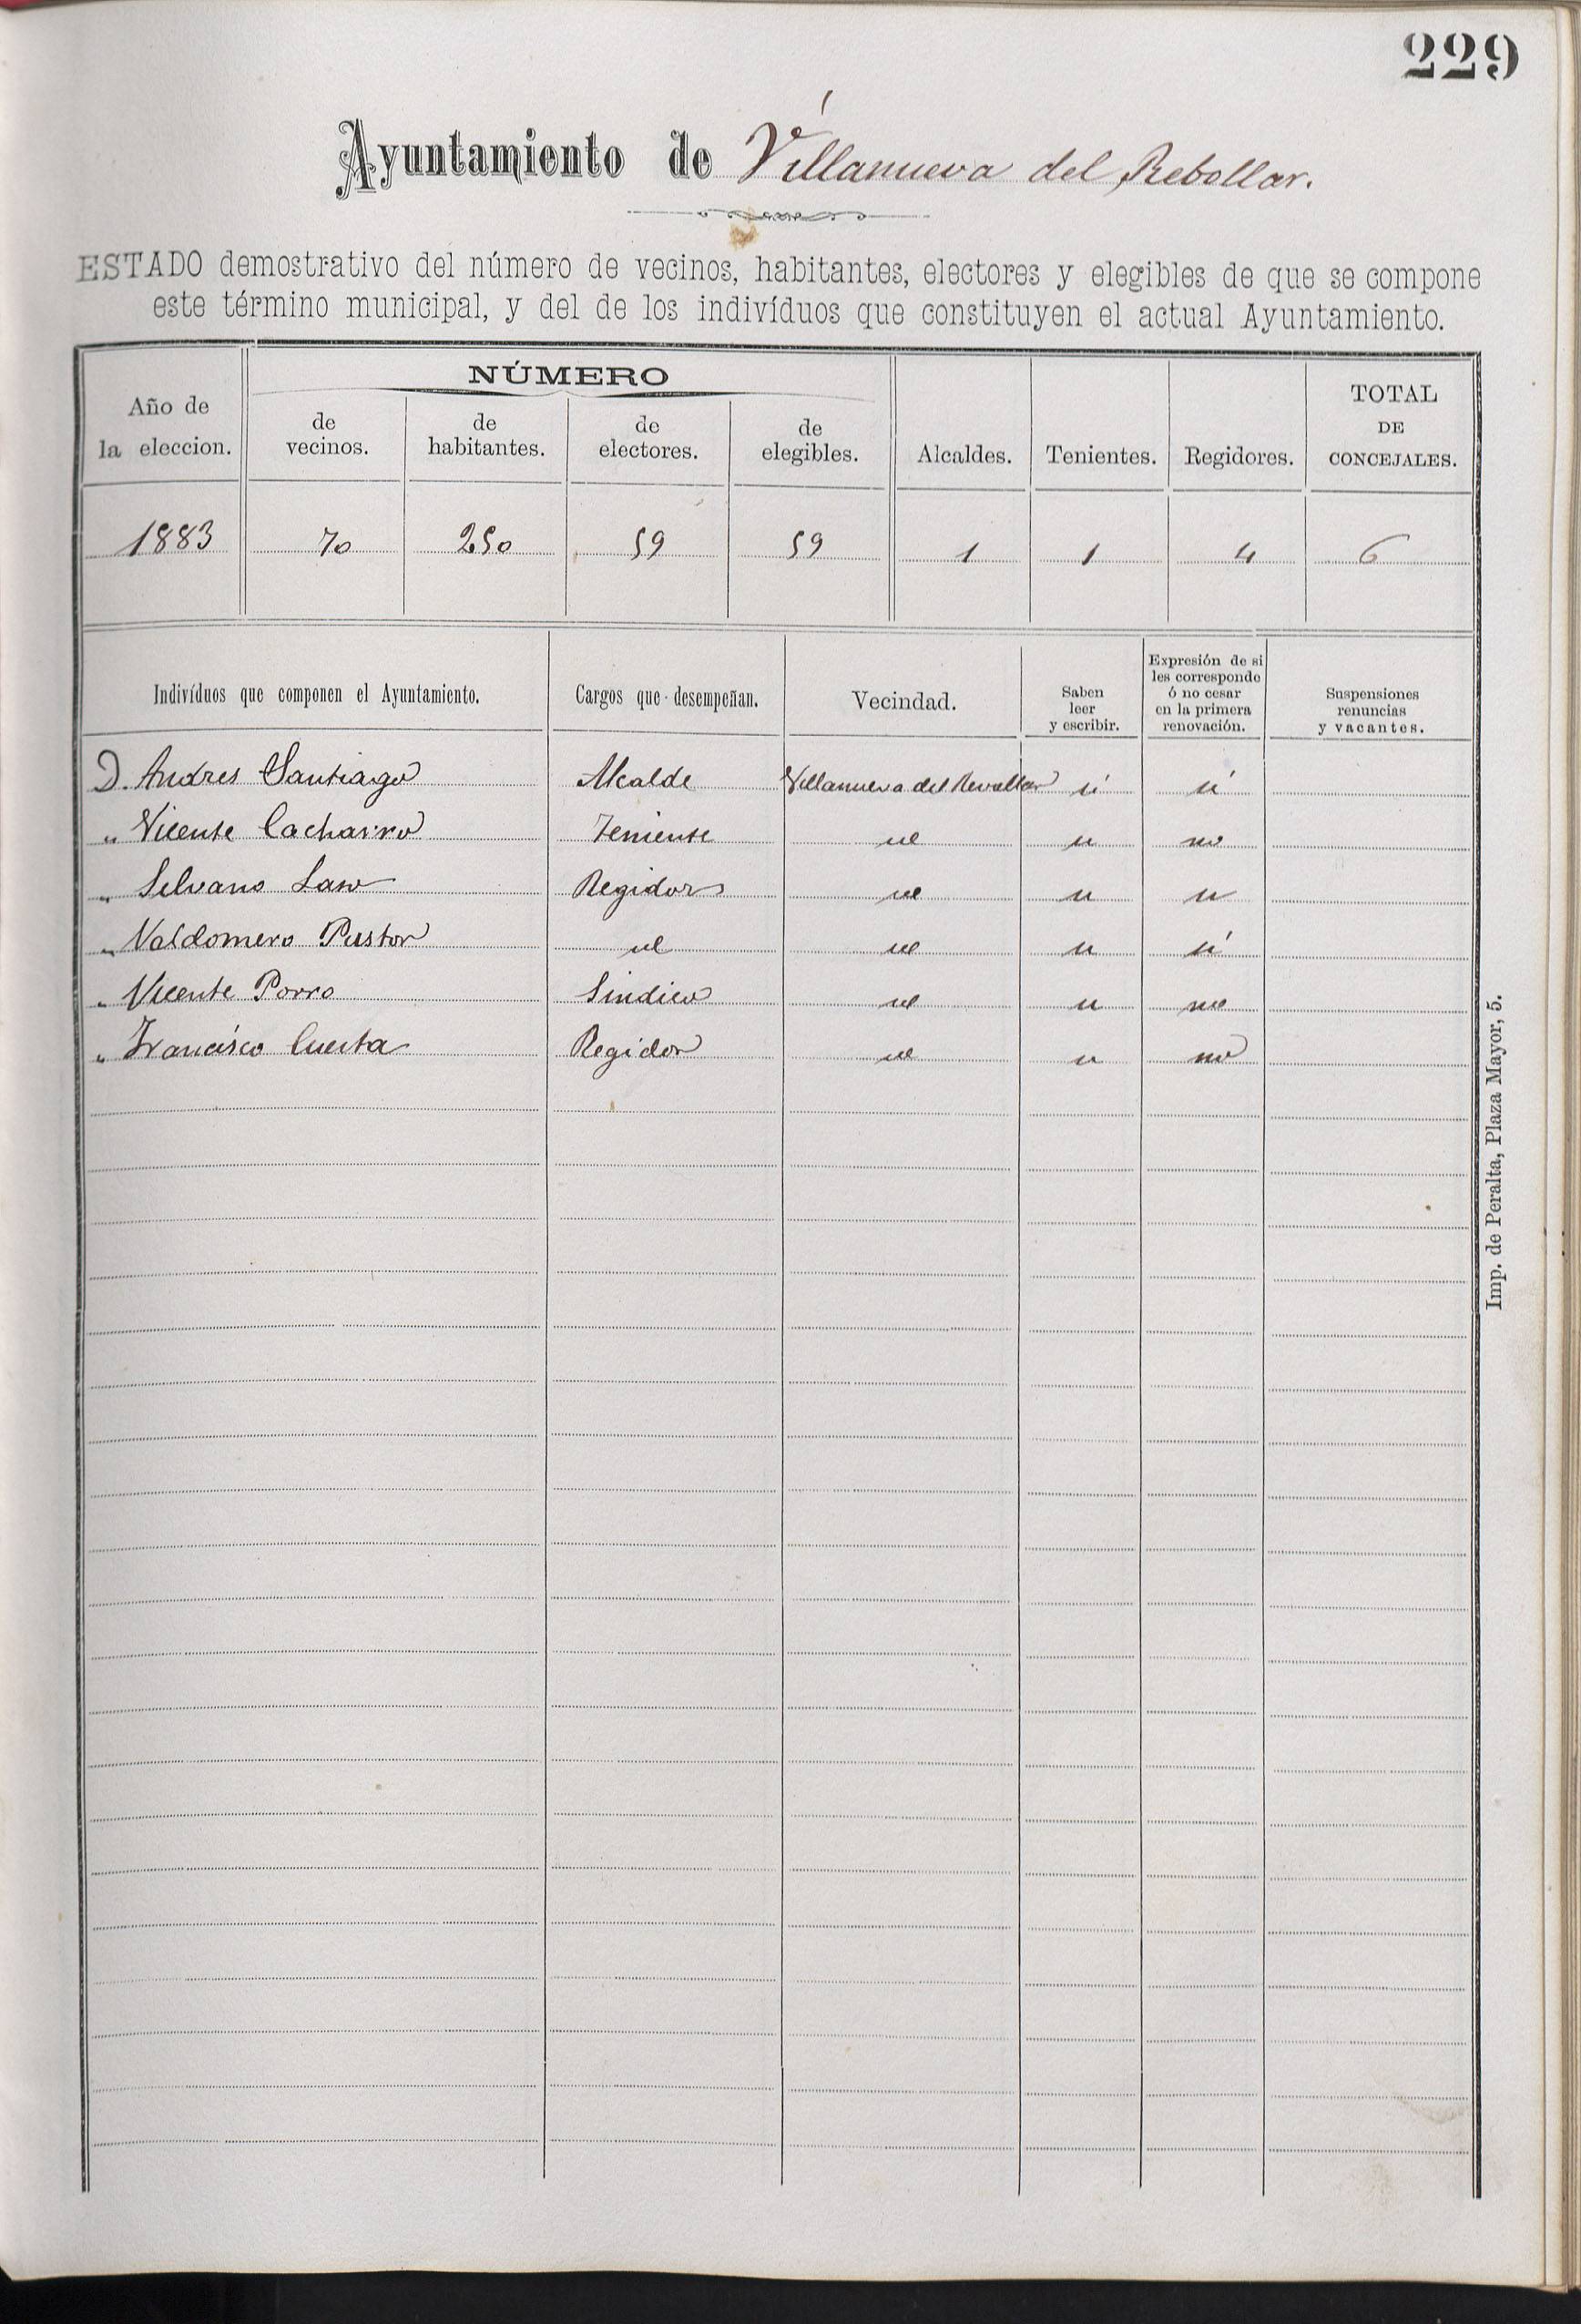 229
Ayuntamiento de Villanueva del Rebollar.
ESTADO demostrativo del número de vecinos, habitantes, electores y elegibles de que se compone
este término municipal, y del de los indivíduos que constituyen el actual Ayuntamiento.
Año de la eleccion. NÚMERO de vecinos. de habitantes. de electores. de elegibles. Alcaldes. Tenientes. Regidores. TOTAL DE CONCEJALES.
1883 70 250 59 59 1 1 4 6
Indivíduos que componen el Ayuntamiento. Cargos que desempeñan. Vecindad. Saben leer y escribir. Expresión de si les corresponde ó no cesar en la primera renovación. Suspensiones renuncias y vacantes.
D. Andres Santiago Alcalde Villanueva del Revollar si si
" Vicente Cacharro Teniente id si no
" Silvano Laso Regidor id si si
" Valdomero Pastor id id si si
" Vicente Porro Sindico id si no
" Francisco Cuesta Regidor id si no
Imp. de Peralta, Plaza Mayor, 5.